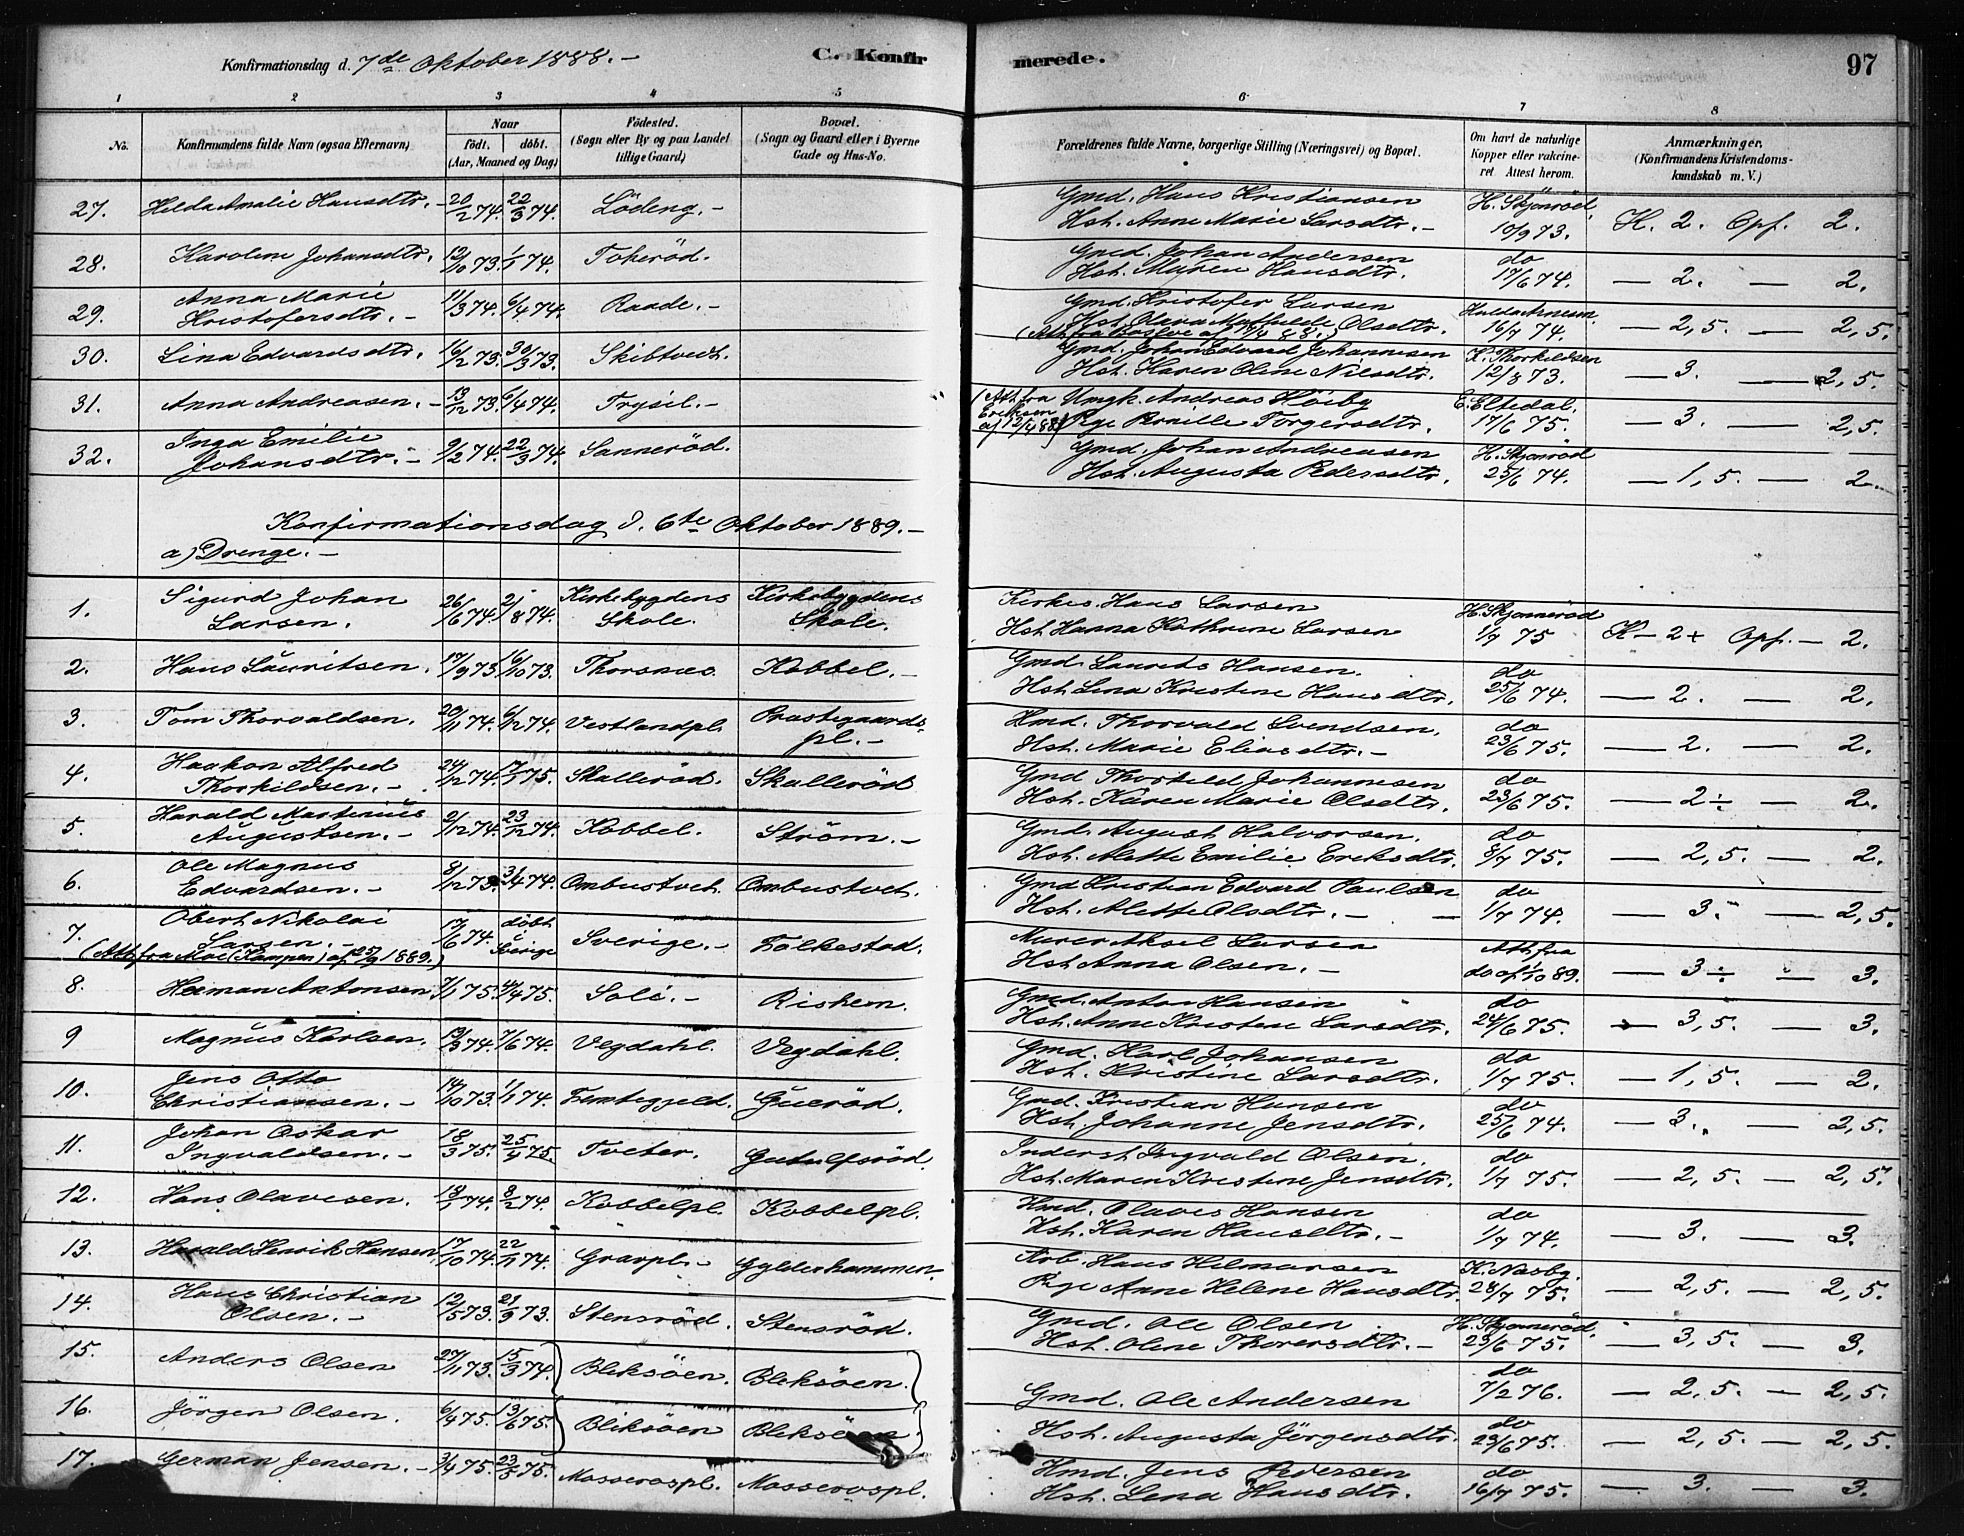 Konfirmationsdag d. 7de Oktober 1888. –
C. Konfirmerede.
97
1 2 3 4 5 6 7 8
No.
Konfirmandens fulde Navn (ogsaa Efternavn)
Naar
født. døbt.
(Aar, Maaned og Dag)
Fødested.
(Sogn eller By og paa Landet
tillige Gaard)
Bopæl.
(Sogn og Gaard eller i Byerne
Gade og Hus-No.
Forældrenes fulde Navne, borgerlige Stilling (Næringsvei) og Bopæl.
Om havt de naturlige
Kopper eller vakcine-
ret. Attest herom.
Anmærkninger.
(Konfirmandens Kristendoms-
kundskab m. V.)
27. Hilda Amalie Hansdtr. – 20/2 74. 22/3 74. Löding. – Gmd. Hans Kristiansen H. Skjönröd.
Hst. Anne Marie Larsdtr. – 10/9 73. K. 2. Opf. 2.
28. Karoline Johansdtr. 12/10 73. 1/1 74. Tokeröd. Gmd. Johan Andersen do
Hst. Maren Hansdtr. 17/6 74. — 2. — 2.
29. Anna Marie 11/3 74. 6/4 74. Raade. – Gmd. Kristofer Larsen Hulda Arnesen
Kristofersdtr. – Hst. Olava Mathilde Olsdtr. 16/7 74. — 2,5. — 2,5.
30. Lina Edvardsdtr. 16/2 73. 30/3 73. Skibtvedt. Gmd. Johan Edvard Johannesen K. Thorkildsen
Hst. Karen Oline Nilsdtr. 12/8 73. — 3. — 2,5.
31. Anna Andreasen. – 13/12 73. 6/4 74. Trysil. – (Att. fra Eriksen af 12/4 88) Ungk. Andreas Höiby E. Eltedal.
Pge Pernille Torgersdtr. 17/6 75. — 3. — 2,5.
32. Inga Emilie 9/2 74. 22/3 74. Sanneröd. Gmd. Johan Andreasen H. Skjönröd
Johansdtr. – Hst. Augusta Pedersdtr. 25/6 74. — 1,5. — 2.
Konfirmationsdag d. 6te Oktober 1889. –
a) Drenge. –
1. Sigurd Johan 26/6 74. 2/8 74. Kirkebygdens Kirkebygdens Kirkes. Hans Larsen H. Skjönneröd
Larsen. Skole. Skole. Hst. Hanna Kathrine Larsen 1/7 75 K – 2+ Opf. – 2.
2. Hans Lauritsen. 17/9 73. 16/10 73. Thorsnæs Kobbel. – Gmd. Laurits Hansen. do
Hst. Lina Kristine Hansdtr. 25/6 74. — 2. — 2.
3. Tom Thorvaldsen. 20/11 74. 6/12 74. Vestlandpl. Præstegaards- Hmd. Thorvald Svendsen. do
pl. – Hst. Marie Eliasdtr. – 23/6 75. — 2. — 2.
4. Haakon Alfred 24/12 74. 17/1 75. Skalleröd. Skalleröd Gmd Thorkild Johannesen do
Thorkildsen. – Hst. Karen Marie Olsdtr. 23/6 75. — 2÷ — 2.
5. Harald Martinius 2/12 74. 23/12 74. Kobbel. Ström. – Gmd. August Halvorsen. do
Augustsen. – Hst. Alette Emilie Eriksdtr. 8/7 75. — 2,5. — 2.
6. Ole Magnus 8/12 73. 3/4 74. Ombustvet. Ombustvet. Gmd Kristian Edvard Paulsen do
Edvardsen. – Hst. Alette Olsdtr. – 1/7 74. — 3. — 2,5.
7. Obert Nikolai 17/6 74. döbt Sverige Sverige. – Falkestad. Murer Aksel Larsen Att. fra
Larsen. – Hst. Anna Olsen. – do af 1/10 89. — 3÷ — 3.
(Att. fra Moe (Kampen) af 25/9 1889.)
8. Herman Antonsen 7/1 75. 4/4 75. Solö. – Riskem. Gmd. Anton Hansen do
Hst. Anne Kristine Larsdtr. 24/6 75. — 3,5. — 3.
9 Magnus Karlsen. 19/3 74. 7/6 74. Vegdahl. Vegdahl. Gmd. Karl Johansen do
Hst. Kristine Larsdtr. 1/7 75. — 1,5. — 2.
10. Jens Otto 14/10 73. 1/1 74. Gueröd. Gmd. Kristian Hansen do
Christiansen. – Hst. Johanne Jensdtr. 25/6 74. — 3. — 2,5.
11. Johan Oskar 18/3 75. 25/4 75. Tveter. Gutulfsröd. Inderst Ingvald Olsen. do
Ingvaldsen. – Hst. Maren Kristine Jensdtr. 1/7 75. — 2,5. — 2,5.
12. Hans Olavesen. 18/1 74. 8/2 74. Kobbelpl. Kobbelpl. Hmd. Olaves Hansen do
Hst. Karen Hansdtr. – 1/7 74. — 3. — 3.
13. Harald Henrik Hansen 17/10 74. 22/11 74. Gravpl. – Gylderhammen. Arb. Hans Helmersen K. Næsby.
Pge Anne Helene Hansdtr. 28/7 75. — 2,5. — 2,5.
14. Hans Christian 12/5 73. 21/9 73. Stensröd. Stensröd. Gmd. Ole Olsen H. Skjönneröd.
Olsen. – Hst. Oline Thoresdtr. – 23/6 75. — 3,5. — 3.
15. Anders Olsen 27/11 73. 15/3 74. Bleksöen. Bleksöen. do
7/2 76. — 2,5. — 2,5.
Gmd. Ole Andersen
16. Jörgen Olsen. 6/4 75. 13/6 75. Bliksöen Bleksöen Hst. Augusta Jörgensdtr. do
23/6 75. — 2,5. — 2,5.
17. German Jensen. – 3/4 75. 23/5 75. Mosserospl. Mosserospl. Hmd. Jens Pedersen do
Hst. Lena Hansdtr. 16/7 75. — 3. — 3.